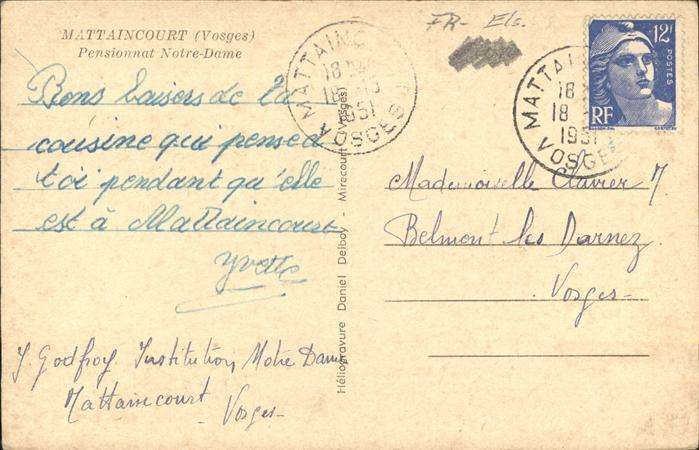 MATTAINCOURT (Vosges)
Pensionnat Notre-Dame
Bons baisers de la
cousine qui pense à
toi pendant qu'elle
est à Mattaincourt
Yvette
Y. Godfroy. Institution Notre Dame
Mattaincourt - Vosges -
Héliogravure Daniel Delboy - Mirecourt (Vosges)
FR- Els.
MATTAINC
18
18
1951
VOSGES
12F
POSTES
RF
MATTAIN
18
18
1951
VOSGES
Mademoiselle Clavier
Belmont les Darnez
Vosges-